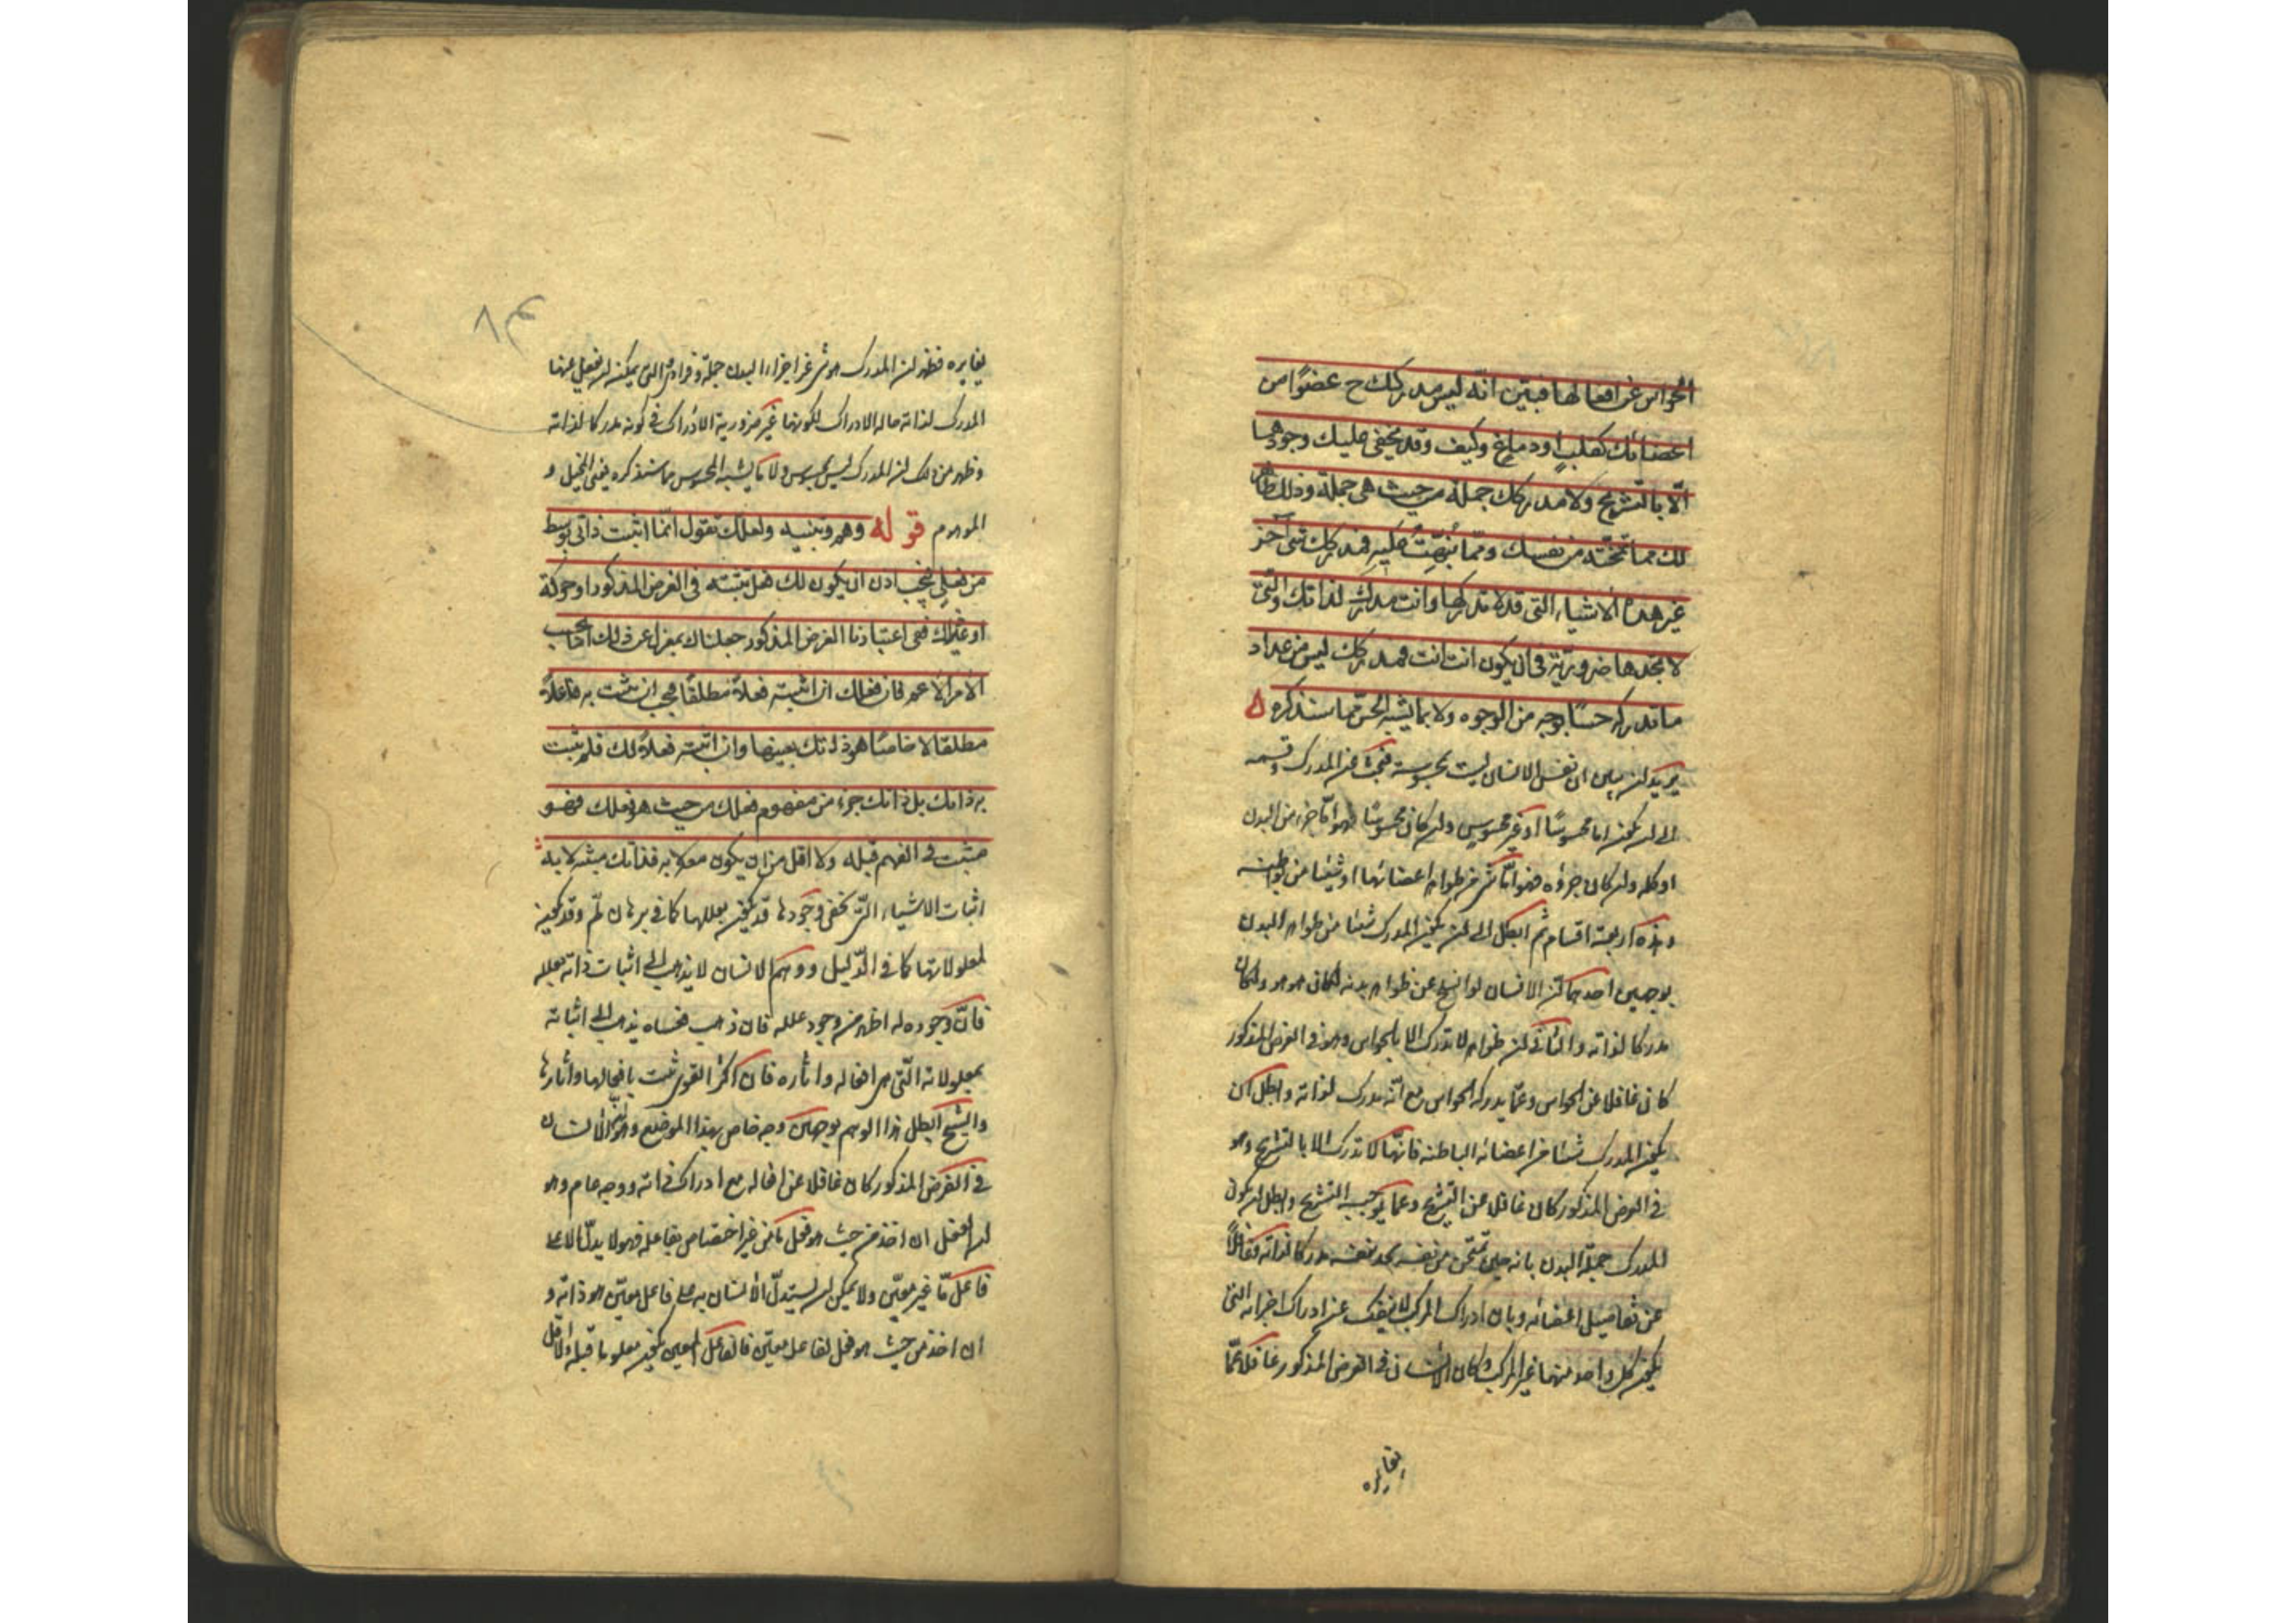 الحواس عن افعالها فبيّن انّه ليس مدركك ح عضوًا من
اعضائك كقلبٍ او دماغٍ وكيف وقد يخفى عليك وجودهما
الّا بالتشريح ولا مدركك جملة من حيث هى جملة وذلك ظاهر
لك مما تمتحنه من نفسك وممّا نُبّهتَ عليه فمدركك شئ آخر
غير هذه الاشياء التى قد لا تدركها وانت مدرك لذاتك والتى
لا تجدها ضروريّة فى ان يكون انت انت فمدركك ليس من عداد
ما تدركه حسًّا بوجه من الوجوه ولا بما يشبه الحسّ مما سنذكره
يريد ان يبين ان نفس الانسان ليست بمحسوسة فبحث عن المدرك وقسمه
الى ان يكون اما محسوسًا او غير محسوس وان كان محسوسًا فهو امّا جزء من البدن
او كله وان كان جزؤه فهو امّا شئ من ظواهر اعضائها او شيئا من بواطنه
وهذه اربعة اقسام ثم ابطل ان يكون المدرك شيئا من ظواهر البدن
بوجهين احدهما ان الانسان لو انسلخ عن ظواهر بدنه لكان هو هو ولكان
مدركا لذاته والثانى ان ظواهره لا تدرك الا بالحواس وهو فى الفرض المذكور
كان غافلا عن الحواس وعمّا يدركه الحواس مع انّه مدرك لذاته وابطل ان
يكون المدرك شيئا من اعضائه الباطنه فانهّا لا تدرك الا بالتشريح وهو
فى الفرض المذكور كان غافلا عن التشريح وعما يوجبه التشريح وابطل ان يكون
المدرك جملة البدن بانه حين تمتحن من نفسه يجد نفسه مدركا لذاته غافلًا
عن تفاصيل اعضائه وبان ادراك المركب لا ينفك عن ادراك اجزائه التى
يكون كل واحد منهما غير المركب وكان الانسان فى الفرض المذكور غافلا عمّا
يغايره
٨٣
يغايره فظهر ان المدرك هو شئ غير اجزاء البدن جملة وفرادى التى يمكن ان يغفل عنها
المدرك لذاته حالة الادراك لكونها غير ضرورية الادراك فى كونه مدركا لذاته
وظهر من ذلك ان المدرك ليس بمحسوس ولا بما يشبه المحسوس مما سنذكره يعنى المخيل و
الموهوم قوله وهم وتنبيه ولعلك تقول انّما اثبت ذاتى بوسط
من فعلى فيجب اذن ان يكون لك فعل تثبته فى الفرض المذكور او حركة
او غير ذلك ففى اعتبارنا الفرض المذكور جعلناك بمعزل عن ذلك امّا بحسب
الامر الاعم فان فعلك ان اثبته فعلًا مطلقًا فيجب ان تثبت به فاعلًا
مطلقا لا خاصّا هو ذاتك بعينها وان اثبته فعلًا لك فلم تثبت
به ذاتك بل ذاتك جزء من مفهوم فعلك من حيث هو فعلك فهو
مثبت فى الفهم قبله ولا اقل من ان يكون معه لا به فذاتك مثبته لا به
اثبات الاشياء التى تخفى وجودها قد يكون بعللها كما فى برهان لمّ وقد يكون
لمعلولاتها كما فى الدّليل ووهم الانسان لا يذهب الى اثبات ذاته بعلله
فانّ وجوده له اظهر من وجود علله فان ذهب فعساه يذهب الى اثباته
بمعلولاته الّتى هى افعاله واثاره فان اكثر القوى تثبت بافعالها واثارها
والشيخ ابطل هذا الوهم بوجهين وجه خاص بهذا الموضع وهو ان الانسان
فى الفرض المذكور كان غافلا عن افعاله مع ادراك ذاته ووجه عام وهو
ان الفعل ان اخذ من حيث هو فعل ما من غير اختصاص بفاعله فهو لا يدلّ الا على
فاعل مّا غير معيّن ولا يمكن ان يستدلّ الانسان به على فاعل معيّن هو ذاته و
ان اخذ من حيث هو فعل لفاعل معيّن فالفاعل المعين يكون معلوما قبله ولا اقل